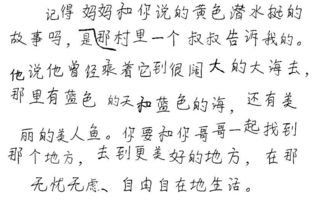 记得妈妈和你说的黄色潜水艇的
故事吗，是那村里一个叔叔告诉我的。
他说他曾经乘着它到很阔大的大海去，
那里有蓝色的天和蓝色的海，还有美
丽的美人鱼。你要和你哥哥一起找到
那个地方，去到更美好的地方，在那
无忧无虑、自由自在地生活。